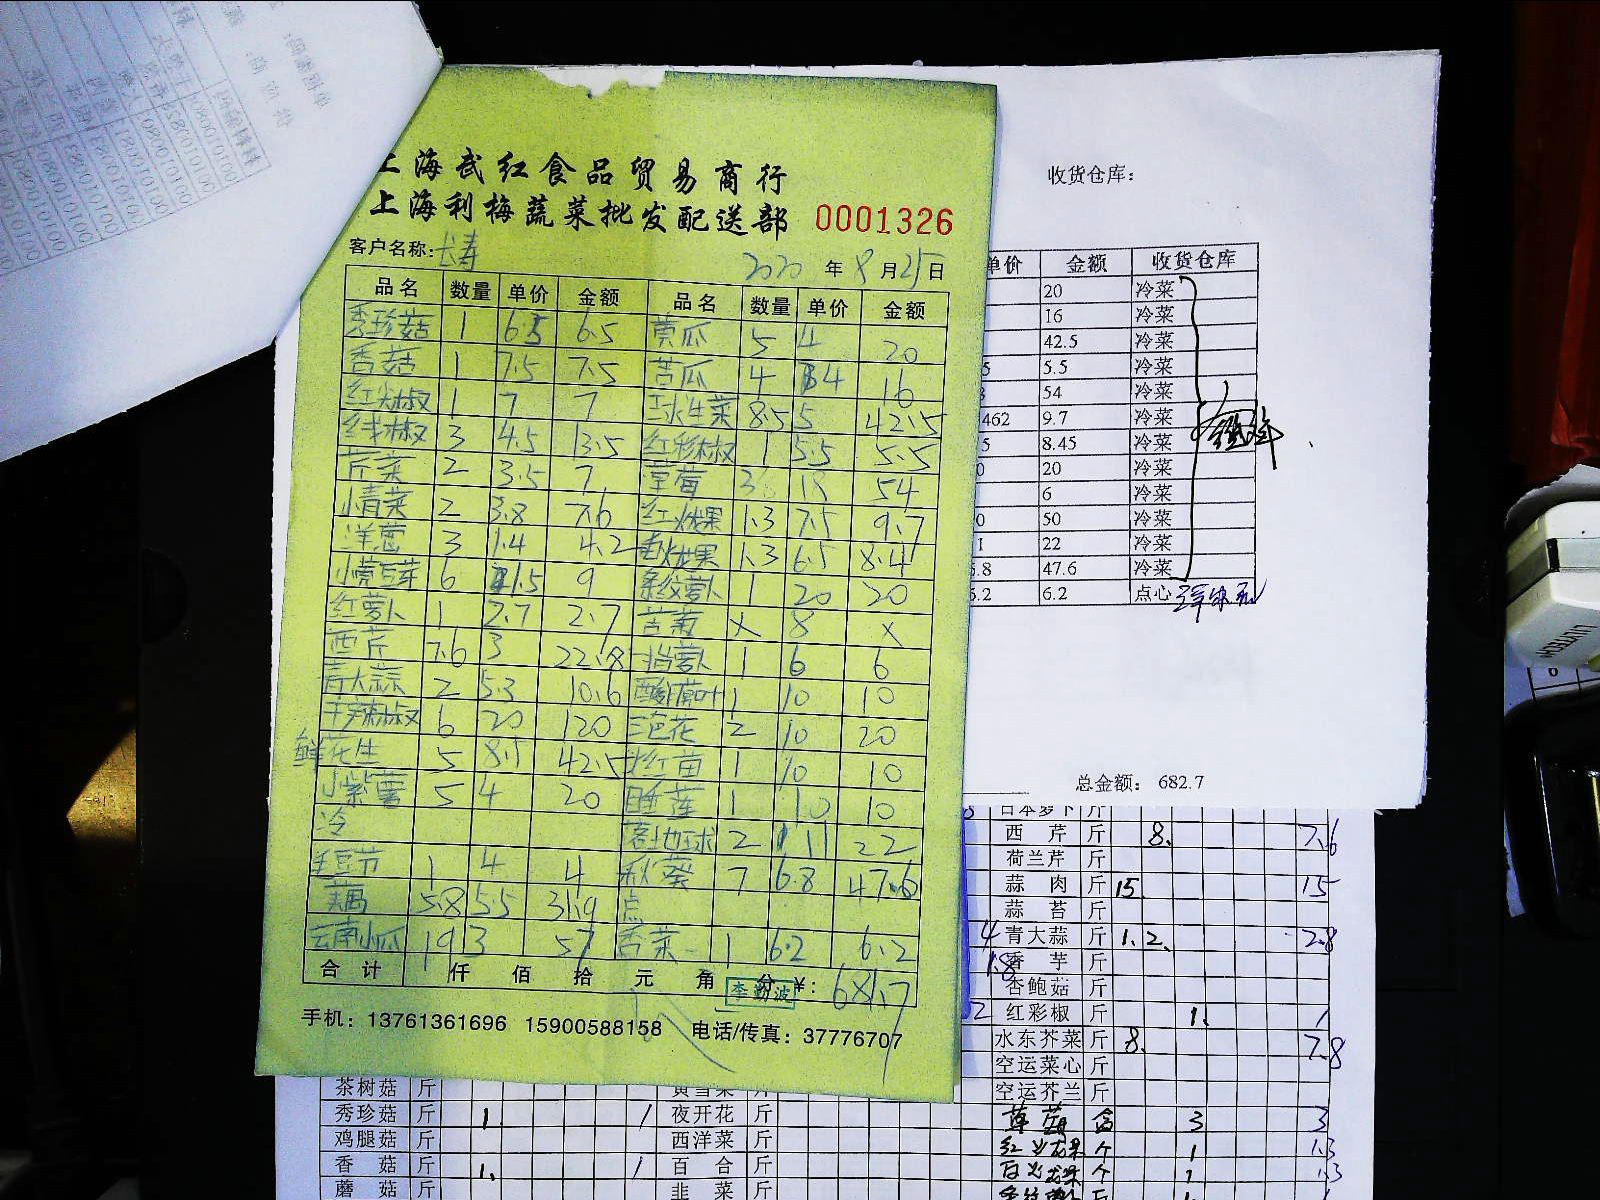 上海武红食品贸易商行
上海利梅蔬菜批发配送部 0001326
客户名称: 长寿 2020 年 8 月 25 日
品名 数量 单价 金额 品名 数量 单价 金额
秀珍菇 1 6.5 6.5 黄瓜 5 4 20
香菇 1 7.5 7.5 苦瓜 4 4 16
红尖椒 1 7 7 球生菜 8.5 5 42.5
线椒 3 4.5 13.5 红彩椒 1 5.5 5.5
芹菜 2 3.5 7 草莓 3 18 54
小青菜 2 3.8 7.6 红火龙果 1.3 7.5 9.7
洋葱 3 1.4 4.2 火龙果 1.3 6.5 8.4
小黄豆芽 6 1.5 9 条纹萝卜 1 20 20
红萝卜 1 2.7 2.7 苦菊 x 8 x
西芹 7.6 3 22.8 萝卜 1 6 6
青大蒜 2 5.3 10.6 叶 1 10 10
干辣椒 6 20 120 三色花 2 10 20
鲜花生 5 8.5 42.5 红苗 1 10 10
小紫薯 5 4 20 睡莲 1 10 10
冷 2 11 22
毛豆节 1 4 4 秋葵 7 6.8 47.6
藕 5.8 5.5 31.9 点
云南小瓜 19 3 57 香菜 1 6.2 6.2
合计 仟 佰 拾 元 角 分 ¥: 681.7
李勤波
手机: 13761361696 15900588158 电话/传真: 37776707
收货仓库:
单价 金额 收货仓库
20 冷菜
16 冷菜
42.5 冷菜
5 5.5 冷菜
54 冷菜
462 9.7 冷菜
5 8.45 冷菜
0 20 冷菜
6 冷菜
0 50 冷菜
22 冷菜
.8 47.6 冷菜
6.2 6.2 点心
总金额: 682.7
日本萝卜 斤
西芹 斤 8. 7.6
荷兰芹 斤
蒜肉 斤 15. 15
蒜苔 斤
青大蒜 斤 1. 2. 2.8
香芋 斤
杏鲍菇 斤
红彩椒 斤 1. 1
水东芥菜 斤 8. 7.8
空运菜心 斤
空运芥兰 斤
草莓 盒 3 3
红火龙果 个 1 1.3
白火龙果 个 1 1.3
茶树菇 斤
秀珍菇 斤 1. 1 夜开花 斤
鸡腿菇 斤 西洋菜 斤
香菇 斤 1. 1 百合 斤
蘑菇 斤 韭菜 斤